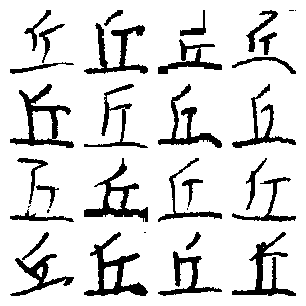 丘丘丘丘
丘丘丘丘
丘丘丘丘
丘丘丘丘